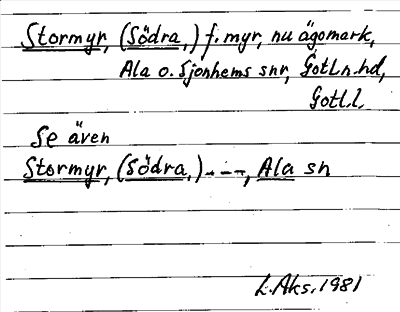 Stormyr, (Södra,) f. myr, nu ägomark,
Ala o. Sjonhems snr, Gotl.n.hd,
Gotl.l.
Se även
Stormyr, (Södra,) - - -, Ala sn
L.Aks. 1981